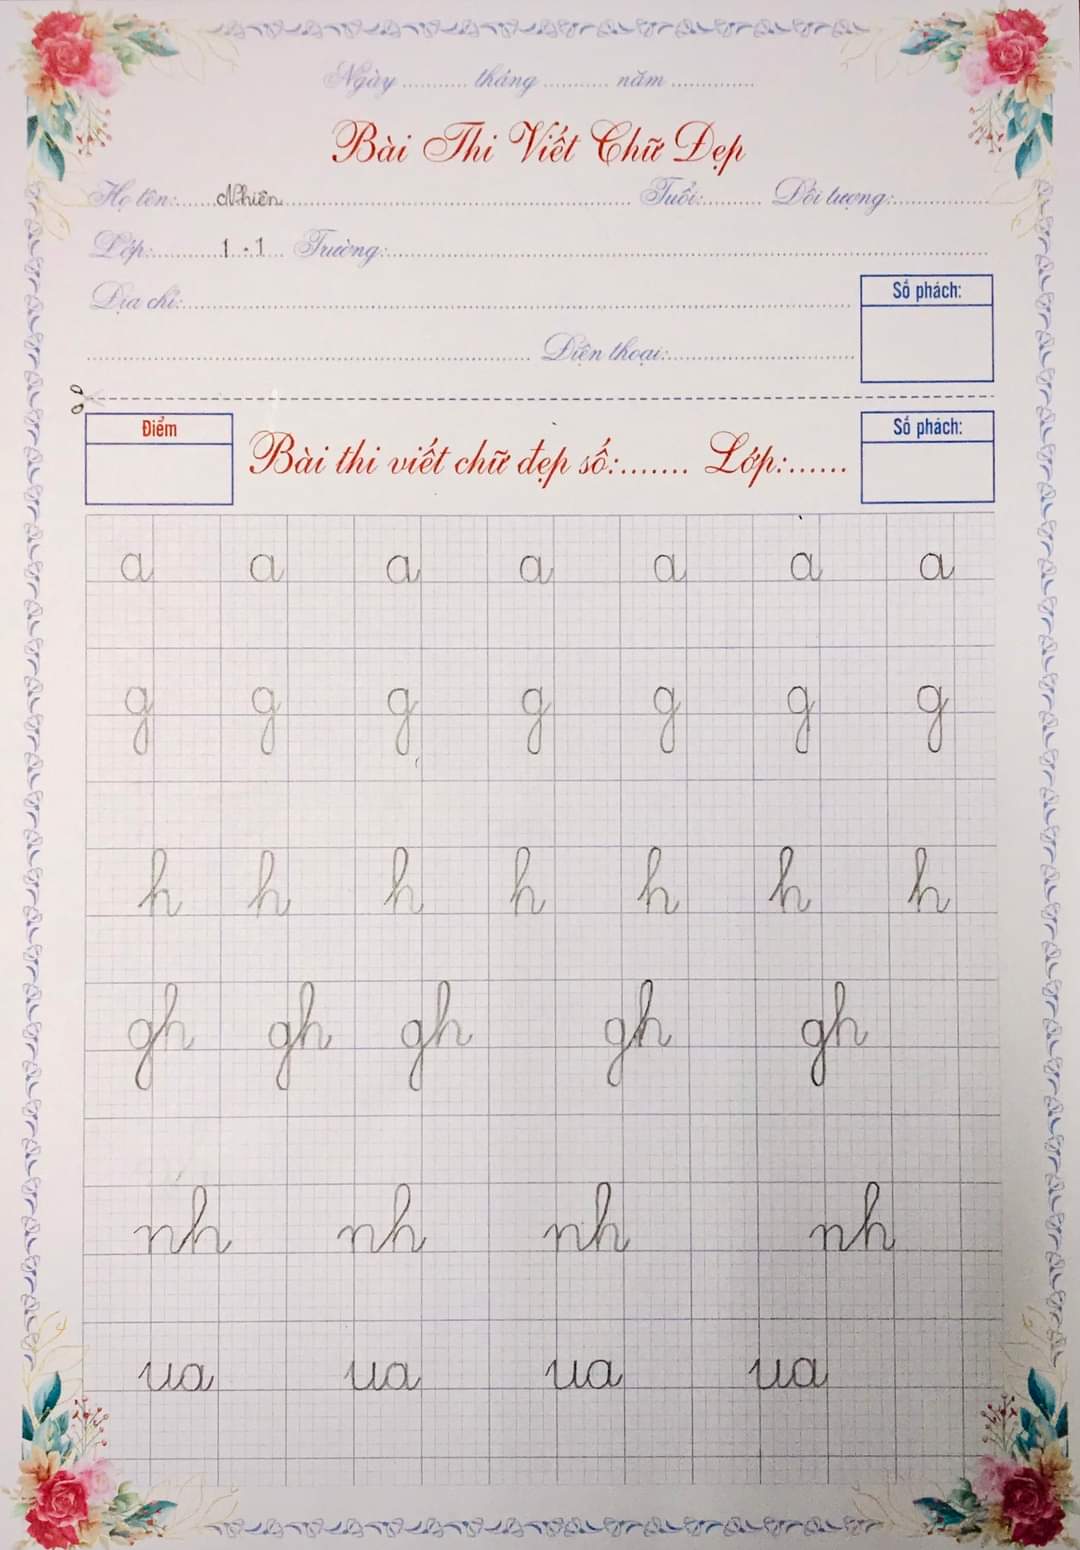 Ngày ........... tháng ........... năm ..............
Bài Thi Viết Chữ Đẹp
Họ tên:......Nhiên.................... Tuổi:.......... Đối tượng:................
Lớp:..........1.1.... Trường:....................
Địa chỉ:....................
Số phách:
.................... Điện thoại:....................
Điểm
Bài thi viết chữ đẹp số:....... Lớp:......
Số phách:
a a a a a a a
g g g g g g g
h h h h h h h
gh gh gh gh gh
nh nh nh nh
ua ua ua ua